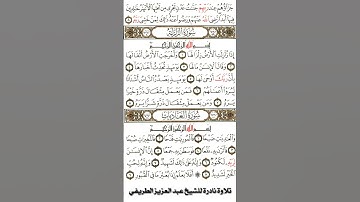 جَزَآؤُهُمْ عِندَ رَبِّهِمْ جَنَّٰتُ عَدْنٍ تَجْرِى مِن تَحْتِهَا ٱلْأَنْهَٰرُ خَٰلِدِينَ
فِيهَآ أَبَدًا رَّضِىَ ٱللَّهُ عَنْهُمْ وَرَضُوا۟ عَنْهُ ذَٰلِكَ لِمَنْ خَشِىَ رَبَّهُۥ ٨
سُورَةُ الزَّلْزَلَةِ
بِسْمِ ٱللَّهِ ٱلرَّحْمَٰنِ ٱلرَّحِيمِ
إِذَا زُلْزِلَتِ ٱلْأَرْضُ زِلْزَالَهَا ١ وَأَخْرَجَتِ ٱلْأَرْضُ أَثْقَالَهَا ٢
وَقَالَ ٱلْإِنسَٰنُ مَا لَهَا ٣ يَوْمَئِذٍ تُحَدِّثُ أَخْبَارَهَا ٤
بِأَنَّ رَبَّكَ أَوْحَىٰ لَهَا ٥ يَوْمَئِذٍ يَصْدُرُ ٱلنَّاسُ أَشْتَاتًا
لِّيُرَوْا۟ أَعْمَٰلَهُمْ ٦ فَمَن يَعْمَلْ مِثْقَالَ ذَرَّةٍ خَيْرًا
يَرَهُۥ ٧ وَمَن يَعْمَلْ مِثْقَالَ ذَرَّةٍ شَرًّا يَرَهُۥ ٨
سُورَةُ العَادِيَاتِ
بِسْمِ ٱللَّهِ ٱلرَّحْمَٰنِ ٱلرَّحِيمِ
وَٱلْعَٰدِيَٰتِ ضَبْحًا ١ فَٱلْمُورِيَٰتِ قَدْحًا ٢ فَٱلْمُغِيرَٰتِ صُبْحًا ٣
فَأَثَرْنَ بِهِۦ نَقْعًا ٤ فَوَسَطْنَ بِهِۦ جَمْعًا ٥ إِنَّ ٱلْإِنسَٰنَ
لِرَبِّهِۦ لَكَنُودٌ ٦ وَإِنَّهُۥ عَلَىٰ ذَٰلِكَ لَشَهِيدٌ ٧ وَإِنَّهُۥ لِحُبِّ ٱلْخَيْرِ
لَشَدِيدٌ ٨ ۞ أَفَلَا يَعْلَمُ إِذَا بُعْثِرَ مَا فِى ٱلْقُبُورِ ٩
تلاوة نادرة للشيخ عبد العزيز الطريفي